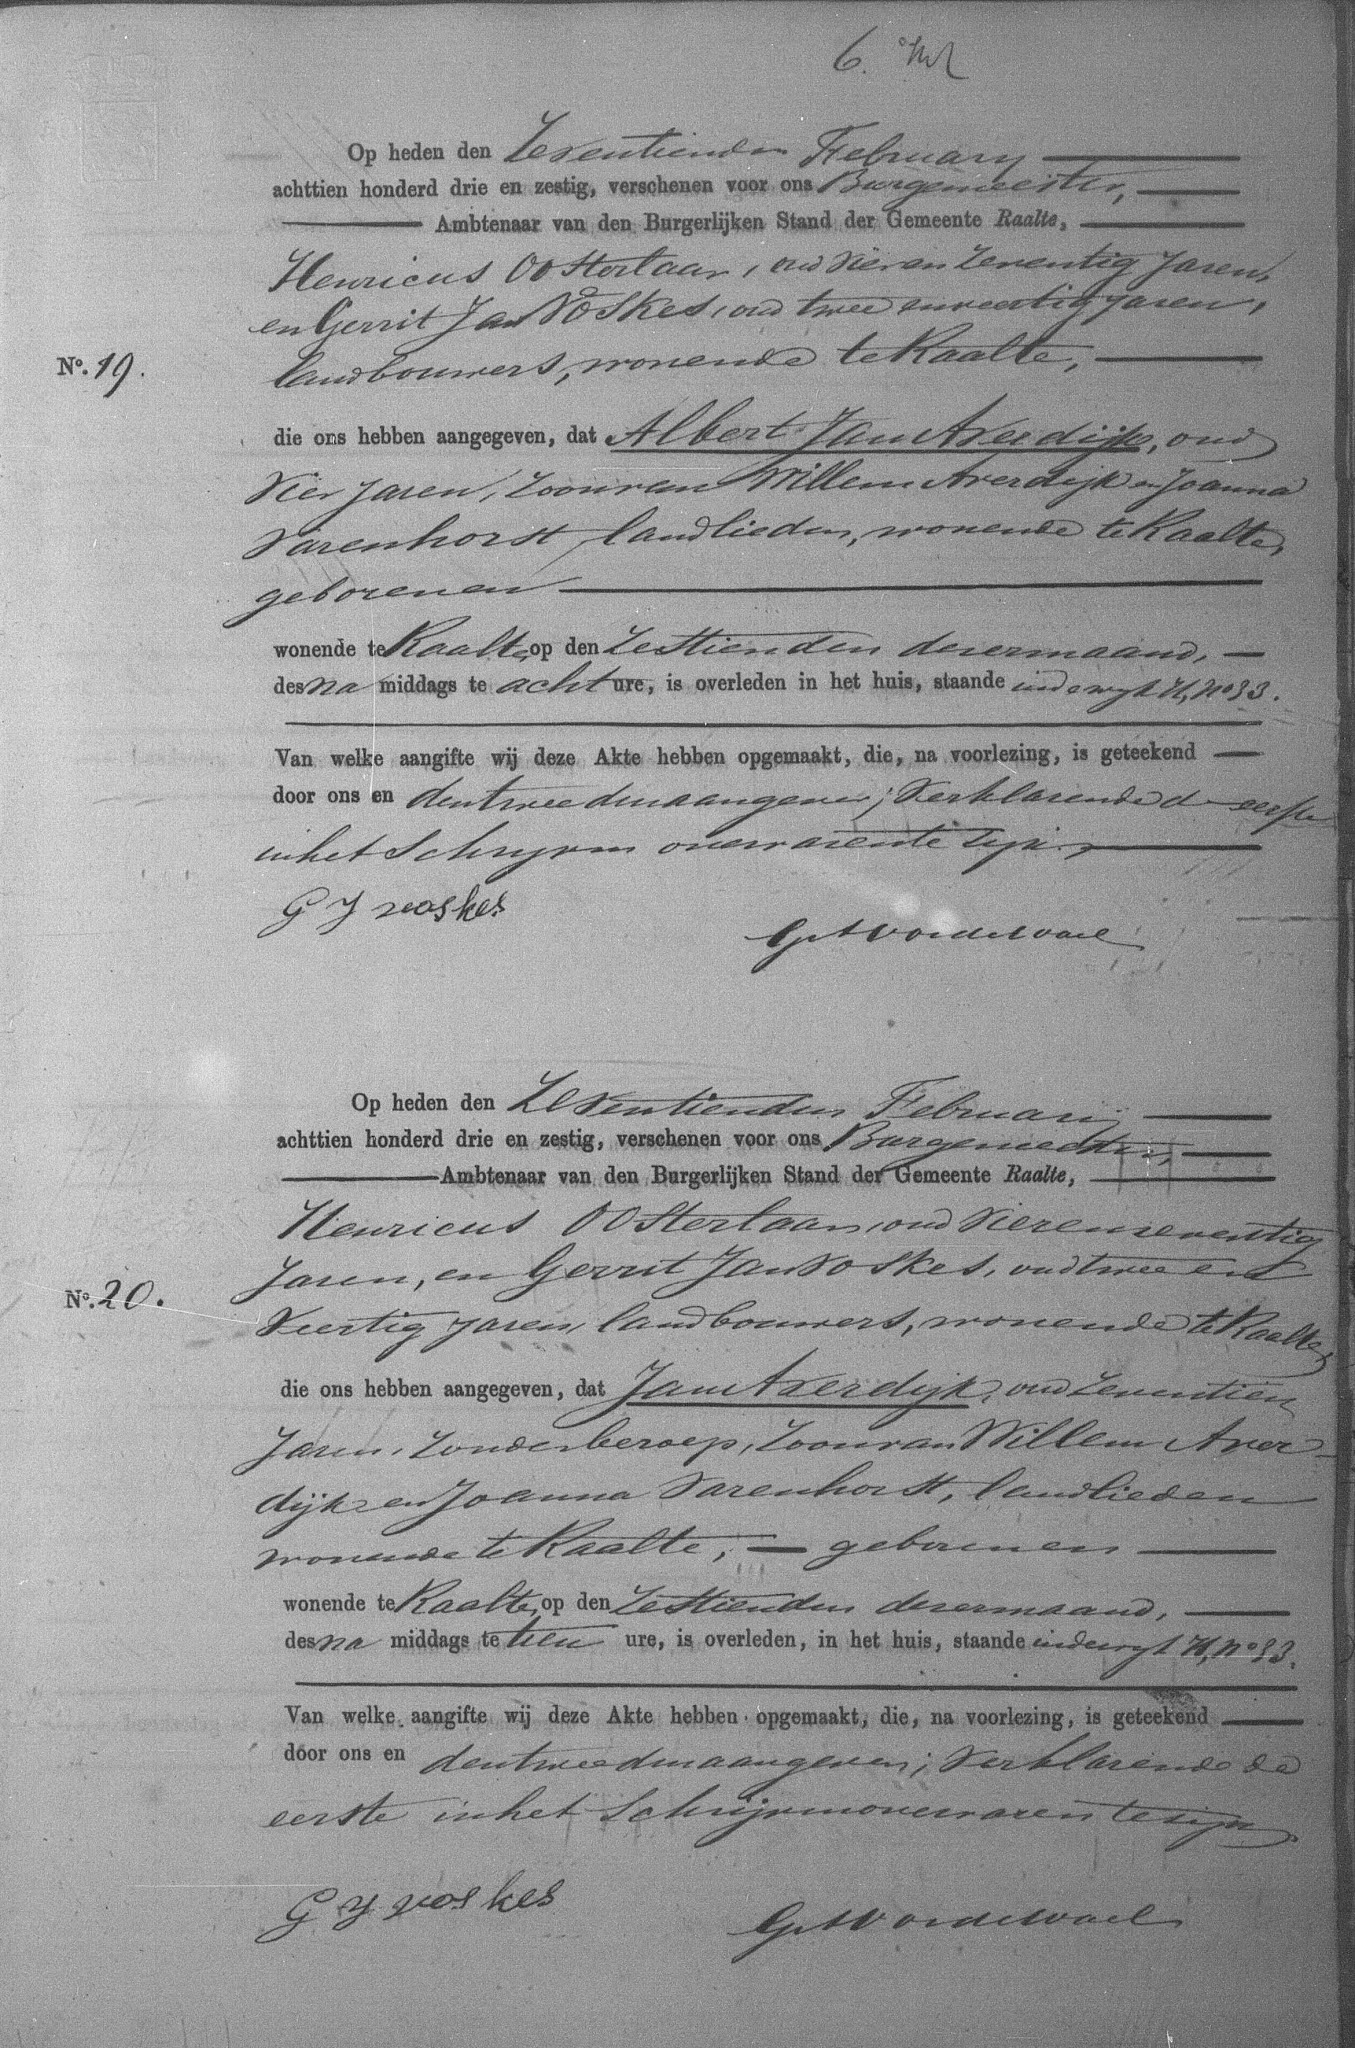 6.
Op heden den Zeventienden February
achttien honderd drie en zestig, verschenen voor ons Burgemeester,
Ambtenaar van den Burgerlijken Stand der Gemeente Raalte,
Henricus Oosterlaar, oud vier en zeventig jaren,
en Gerrit Jan Voskes, oud twee en veertig jaren,
No. 19.
landbouwers, wonende te Raalte,
die ons hebben aangegeven, dat Albert Jan Averdijk, oud
vier jaren, zoon van Willem Averdijk en Joanna
Varenhorst landlieden, wonende te Raalte,
geborenen
wonende te Raalte, op den Zestienden dezer maand,
des na middags te acht ure, is overleden in het huis, staande in de wijk H, no 33.
Van welke aangifte wij deze Akte hebben opgemaakt, die, na voorlezing, is geteekend
door ons en den tweeden aangever; verklarende de eerste
in het schryven onervaren te zijn.
G J voskes
Op heden den Zeventienden February
achttien honderd drie en zestig, verschenen voor ons Burgemeester,
Ambtenaar van den Burgerlijken Stand der Gemeente Raalte,
Henricus Oosterlaar, oud vier en zeventig
jaren, en Gerrit Jan Voskes, oud twee en
No. 20.
veertig jaren, landbouwers, wonende te Raalte,
die ons hebben aangegeven, dat Jan Averdijk, oud zeventien
jaren, zonder beroep, zoon van Willem Aver-
dijk en Joanna Varenhorst, landlieden
wonende te Raalte, geborenen
wonende te Raalte, op den Zestienden dezer maand,
des na middags te tien ure, is overleden, in het huis, staande in de wijk H, no 33.
Van welke aangifte wij deze Akte hebben opgemaakt, die, na voorlezing, is geteekend
door ons en den tweeden aangever; verklarende de
eerste in het schrijven onervaren te zijn
G J voskes